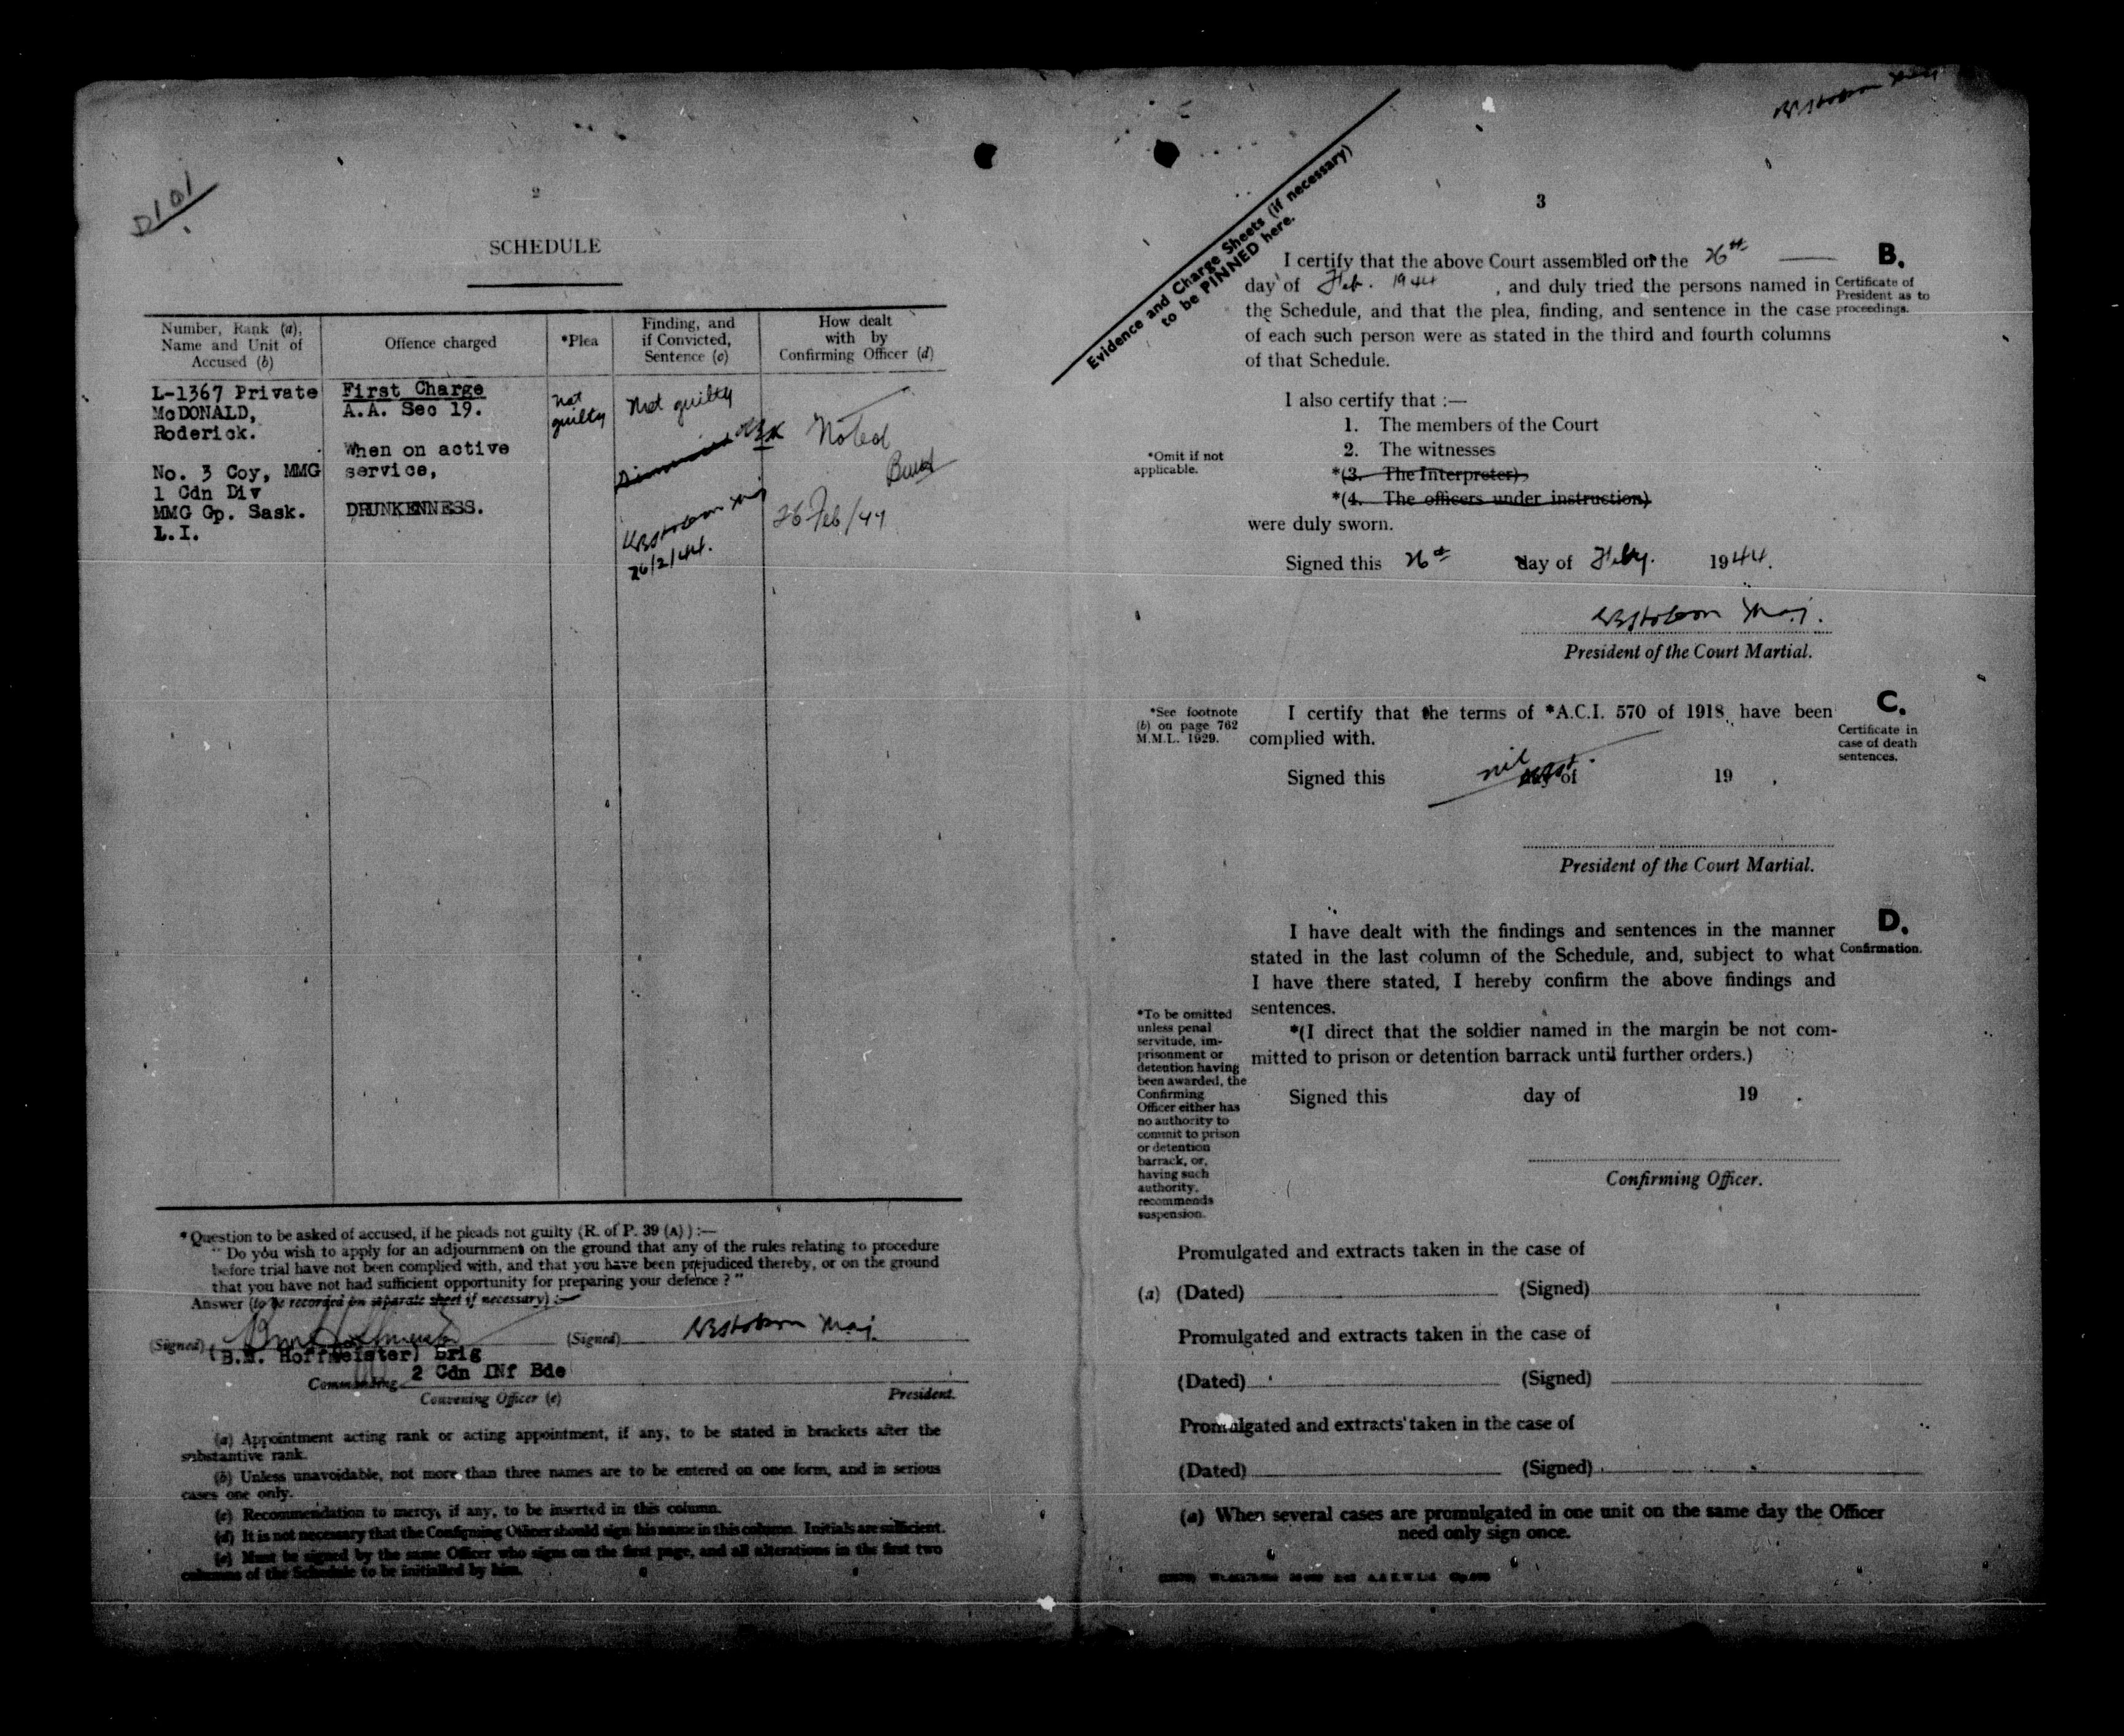 D101
2
SCHEDULE
Number, Rank (a),
Name and Unit of
Accused (b)
Offence charged
*Plea
Finding, and
if Convicted,
Sentence (c)
How dealt
with by
Confirming Officer (d)
L-1367 Private
McDONALD,
Roderick.
No. 3 Coy, MMG
1 Cdn Div
MMG Gp. Sask.
L.I.
First Charge
A.A. Sec 19.
When on active
service,
DRUNKENNESS.
Not
guilty
Not guilty
Maj
26/2/44.
Noted
26 Feb/44
*Question to be asked of accused, if he pleads not guilty (R. of P. 39 (A)) :—
" Do you wish to apply for an adjournment on the ground that any of the rules relating to procedure
before trial have not been complied with, and that you have been prejudiced thereby, or on the ground
that you have not had sufficient opportunity for preparing your defence ? "
Answer (to be recorded on separate sheet if necessary) :—
(Signed) (Signed) Maj.
(B.M. Hoffmeister) Brig
Commanding 2 Cdn INf Bde
Convening Officer (e) President.
(a) Appointment acting rank or acting appointment, if any, to be stated in brackets after the
substantive rank.
(b) Unless unavoidable, not more than three names are to be entered on one form, and in serious
cases one only.
(c) Recommendation to mercy, if any, to be inserted in this column.
(d) It is not necessary that the Confirming Officer should sign his name in this column. Initials are sufficient.
(e) Must be signed by the same Officer who signs on the first page, and all alterations in the first two
columns of the Schedule to be initialled by him.
Evidence and Charge Sheets (if necessary)
to be PINNED here.
3
I certify that the above Court assembled on the 26th
day of Feb. 1944 , and duly tried the persons named in
the Schedule, and that the plea, finding, and sentence in the case
of each such person were as stated in the third and fourth columns
of that Schedule.
B.
Certificate of
President as to
proceedings.
I also certify that :—
1. The members of the Court
2. The witnesses
*(3. The Interpreter)
*(4. The officers under instruction)
were duly sworn.
*Omit if not
applicable.
Signed this 26th day of Feby. 1944.
Maj.
President of the Court Martial.
*See footnote
(b) on page 762
M.M.L. 1929.
I certify that the terms of *A.C.I. 570 of 1918 have been
complied with.
C.
Certificate in
case of death
sentences.
Signed this nil day of 19 .
President of the Court Martial.
I have dealt with the findings and sentences in the manner
stated in the last column of the Schedule, and, subject to what
I have there stated, I hereby confirm the above findings and
sentences.
D.
Confirmation.
*(I direct that the soldier named in the margin be not com-
mitted to prison or detention barrack until further orders.)
*To be omitted
unless penal
servitude, im-
prisonment or
detention having
been awarded, the
Confirming
Officer either has
no authority to
commit to prison
or detention
barrack, or,
having such
authority,
recommends
suspension.
Signed this day of 19 .
Confirming Officer.
Promulgated and extracts taken in the case of
(a) (Dated) (Signed)
Promulgated and extracts taken in the case of
(Dated) (Signed)
Promulgated and extracts taken in the case of
(Dated) (Signed)
(a) When several cases are promulgated in one unit on the same day the Officer
need only sign once.